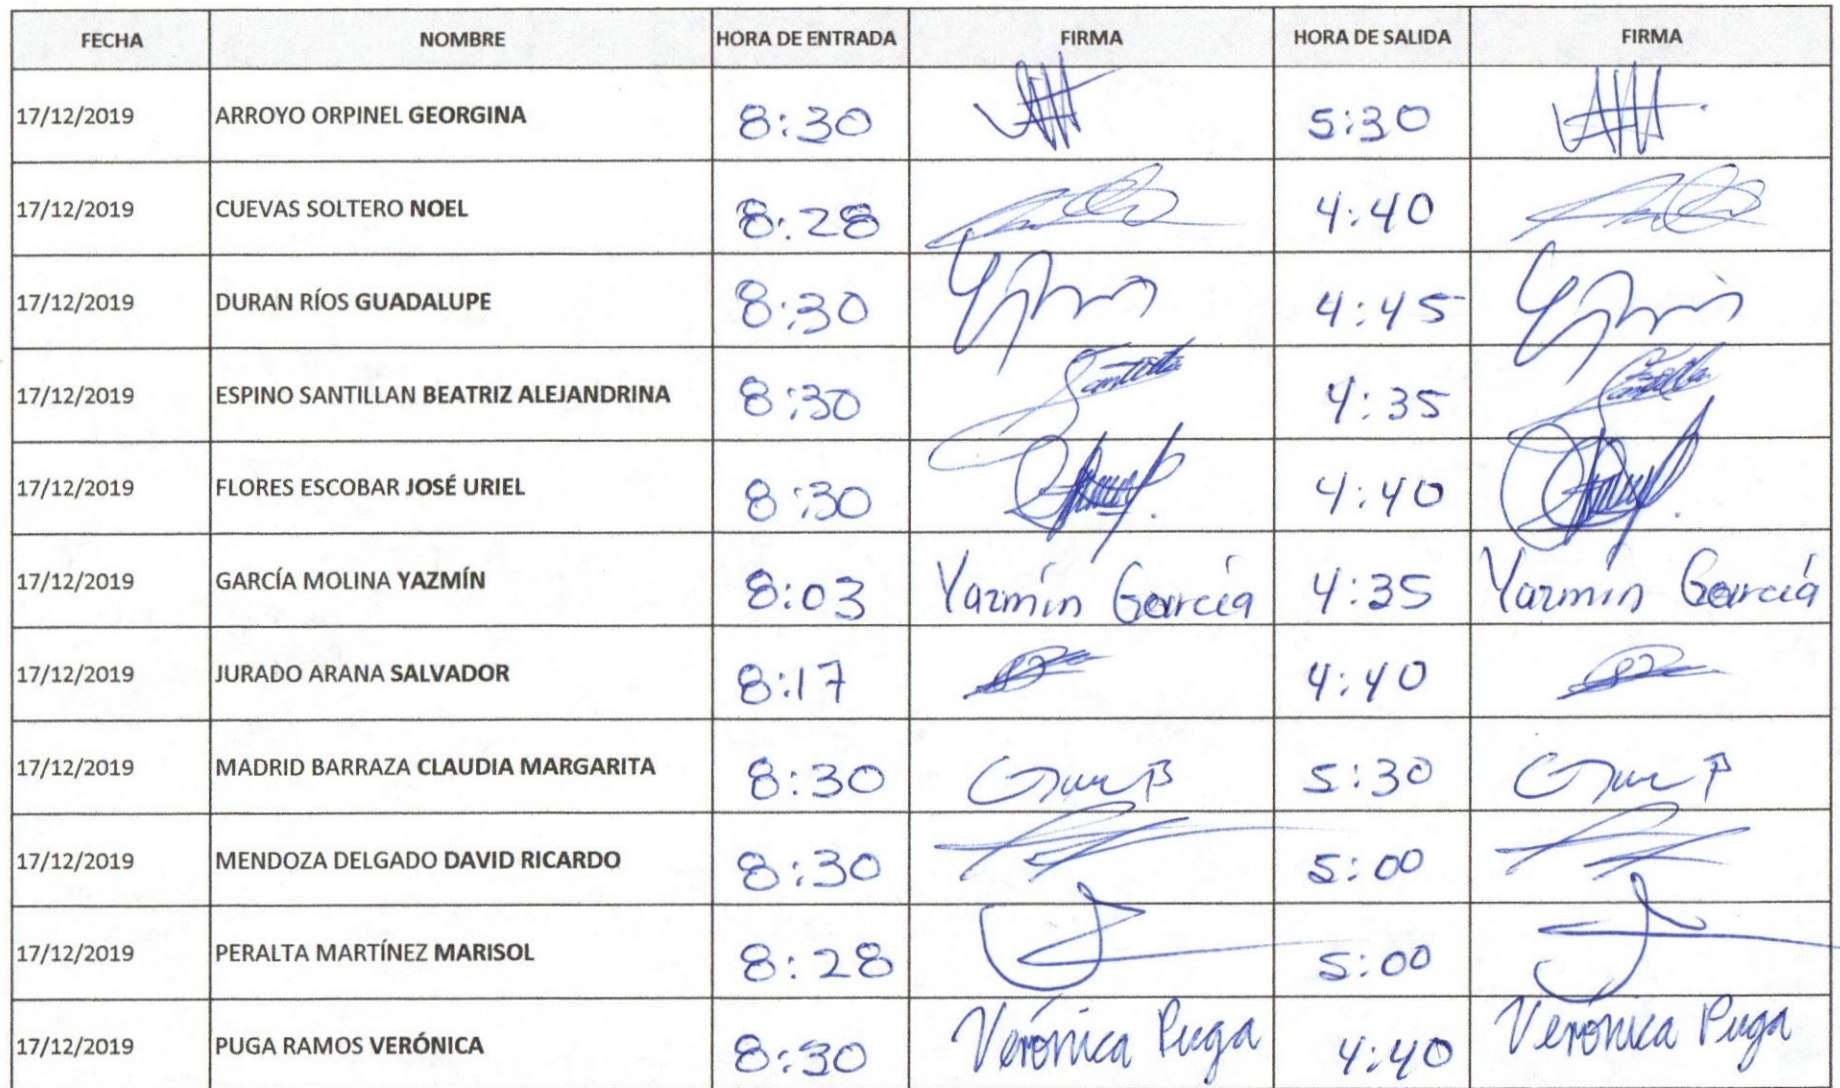 FECHA NOMBRE HORA DE ENTRADA FIRMA HORA DE SALIDA FIRMA
17/12/2019 ARROYO ORPINEL GEORGINA 8:30 5:30
17/12/2019 CUEVAS SOLTERO NOEL 8:28 4:40
17/12/2019 DURAN RÍOS GUADALUPE 8:30 4:45
17/12/2019 ESPINO SANTILLAN BEATRIZ ALEJANDRINA 8:30 4:35
17/12/2019 FLORES ESCOBAR JOSÉ URIEL 8:30 4:40
17/12/2019 GARCÍA MOLINA YAZMÍN 8:03 Yazmín García 4:35 Yazmín García
17/12/2019 JURADO ARANA SALVADOR 8:17 4:40
17/12/2019 MADRID BARRAZA CLAUDIA MARGARITA 8:30 5:30
17/12/2019 MENDOZA DELGADO DAVID RICARDO 8:30 5:00
17/12/2019 PERALTA MARTÍNEZ MARISOL 8:28 5:00
17/12/2019 PUGA RAMOS VERÓNICA 8:30 Verónica Puga 4:40 Verónica Puga